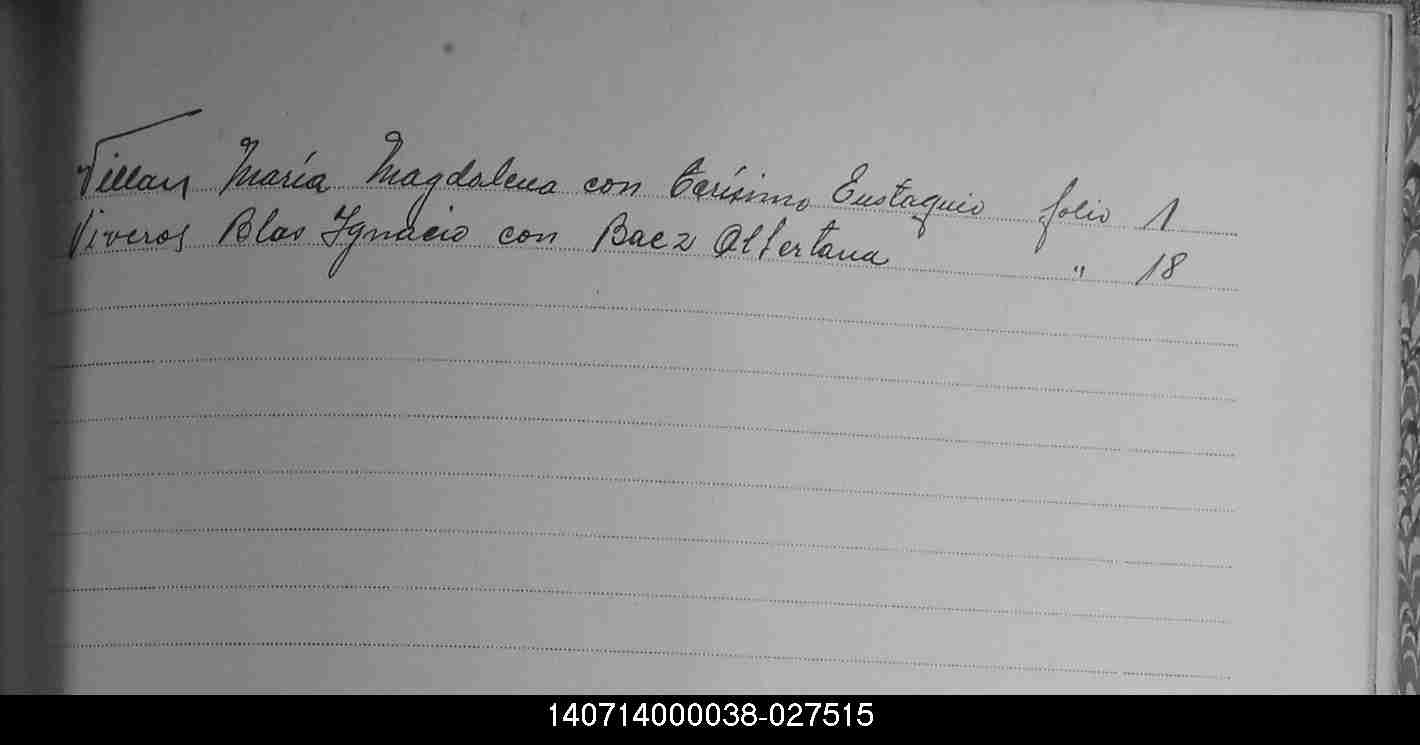 Villan María Magdalena con Carísimo Eustaquio folio 1
Viveros Blas Ignacio con Baez " 18
140714000038-027515